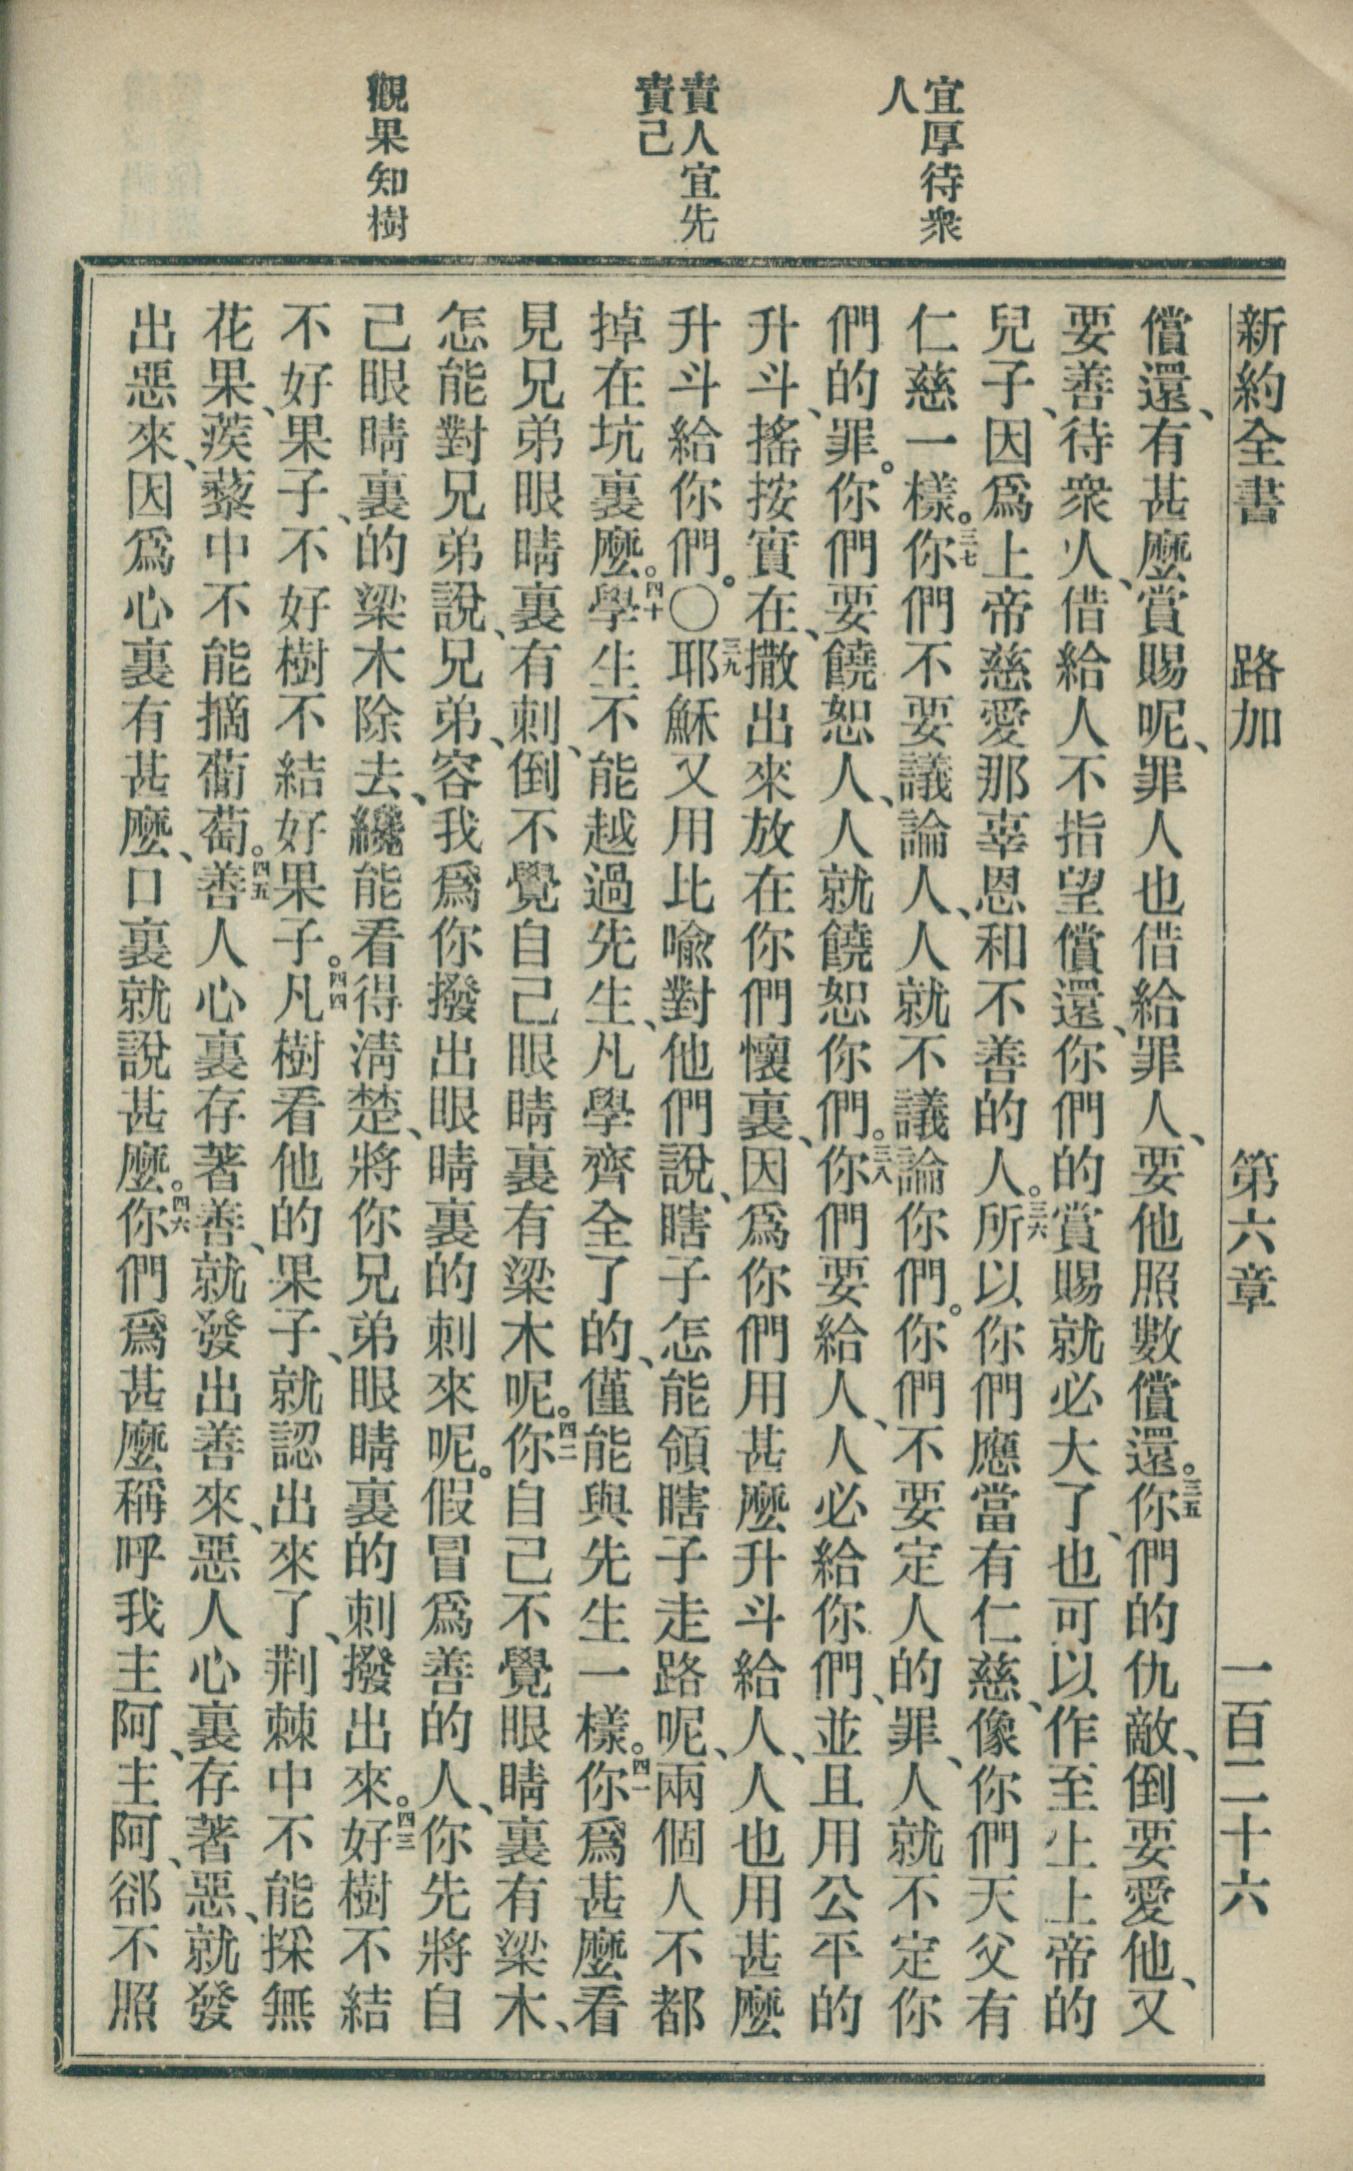 宜厚待衆
人
責人宜先
責己
觀果知樹
新約全書 路加 第六章 一百二十六
償還、有甚麼賞賜呢、罪人也借給罪人、要他照數償還。三五你們的仇敵、倒要愛他、又
要善待衆人、借給人不指望償還、你們的賞賜就必大了、也可以作至上上帝的
兒子、因爲上帝慈愛那辜恩和不善的人。三六所以你們應當有仁慈、像你們天父有
仁慈一樣。三七你們不要議論人、人就不議論你們。你們不要定人的罪、人就不定你
們的罪。你們要饒恕人、人就饒恕你們。三八你們要給人、人必給你們、並且用公平的
升斗、搖按實在、撒出來放在你們懷裏、因爲你們用甚麼升斗給人、人也用甚麼
升斗給你們。〇三九耶穌又用比喩對他們說、瞎子怎能領瞎子走路呢、兩個人不都
掉在坑裏麼。四十學生不能越過先生、凡學齊全了的、僅能與先生一樣。四一你爲甚麼看
見兄弟眼睛裏有刺、倒不覺自己眼睛裏有梁木呢。四二你自己不覺眼睛裏有梁木、
怎能對兄弟說、兄弟、容我爲你撥出眼睛裏的刺來呢。假冒爲善的人、你先將自
己眼睛裏的梁木除去、纔能看得淸楚、將你兄弟眼睛裏的刺撥出來。四三好樹不結
不好果子、不好樹不結好果子。四四凡樹看他的果子、就認出來了、荆棘中不能採無
花果、蒺藜中不能摘葡萄。四五善人心裏存著善、就發出善來、惡人心裏存著惡、就發
出惡來、因爲心裏有甚麼、口裏就說甚麼。四六你們爲甚麼稱呼我主阿、主阿、卻不照